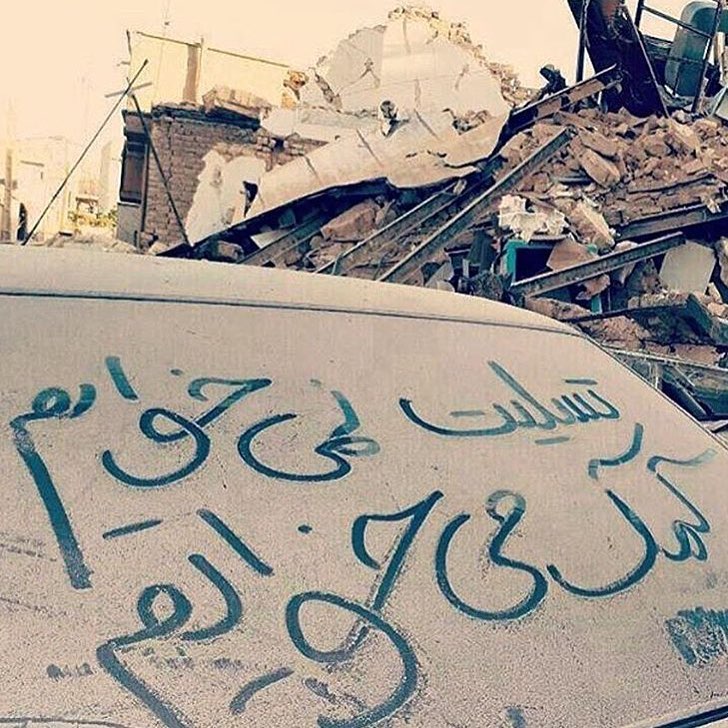 تسلیت نمی خوایم
کمک می خوایم